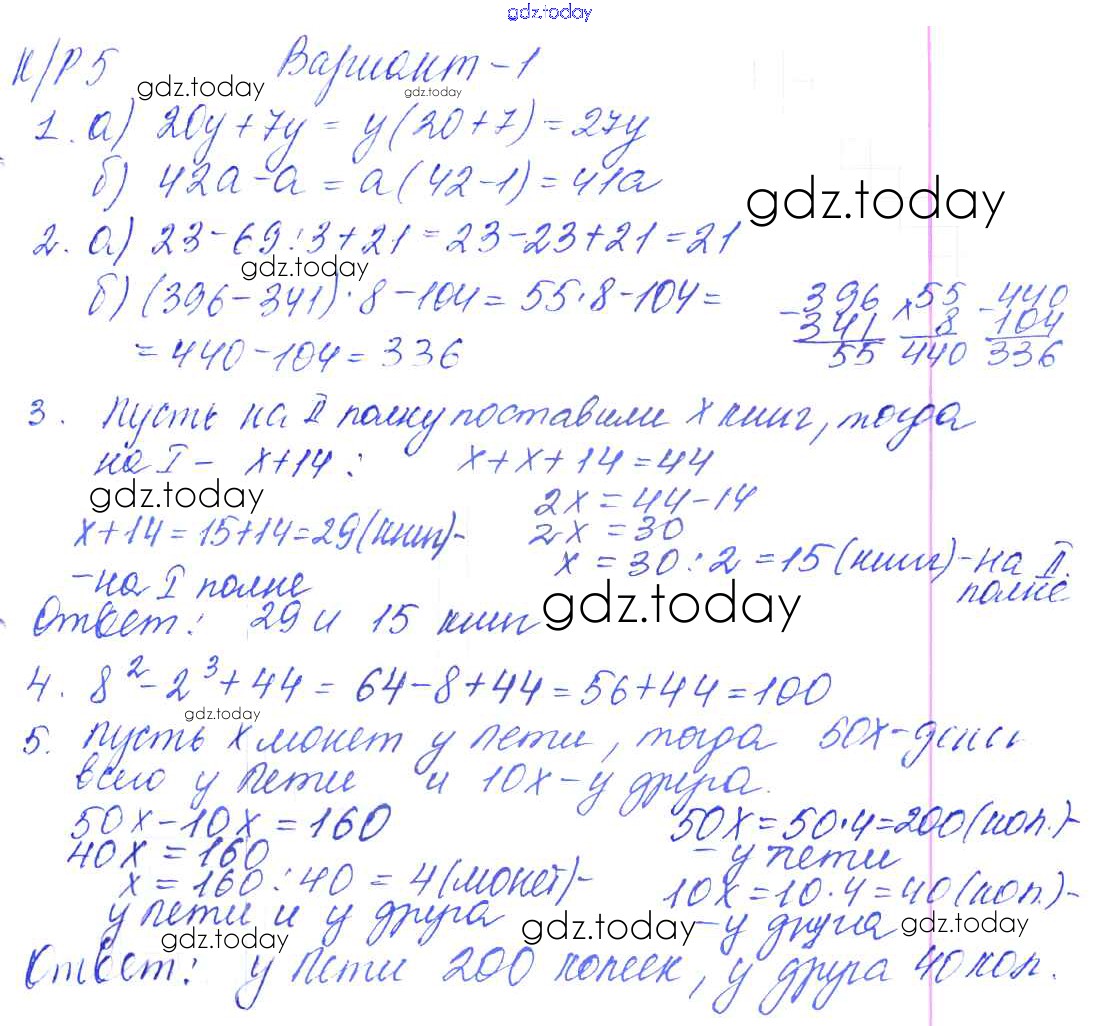 gdz.today
К/Р 5 Вариант-1
gdz.today gdz.today
1. а) 20y+7y = y(20+7) = 27y
б) 42a-a = a(42-1) = 41a
gdz.today
2. а) 23-69:3+21 = 23-23+21 = 21
gdz.today
б) (396-341)·8-104 = 55·8-104 =
= 440-104 = 336
-396 ×55 -440
341 8 104
55 440 336
3. Пусть на II полку поставили x книг, тогда
на I - x+14: x+x+14=44
gdz.today
2x = 44-14
x+14 = 15+14=29(книг)- 2x = 30
x = 30:2 = 15(книг)-на II
-на I полке полке
gdz.today
Ответ: 29 и 15 книг
4. 8²-2³+44 = 64-8+44 = 56+44 = 100
gdz.today
5. Пусть x монет у Пети, тогда 50x-денег
всего у Пети и 10x-у друга.
50x-10x = 160 50x = 50·4=200(коп.)-
40x = 160 - у Пети
x = 160:40 = 4(монет)- 10x = 10·4 = 40(коп.)-
у Пети и у друга -у друга
gdz.today gdz.today gdz.today
Ответ: у Пети 200 копеек, у друга 40 коп.